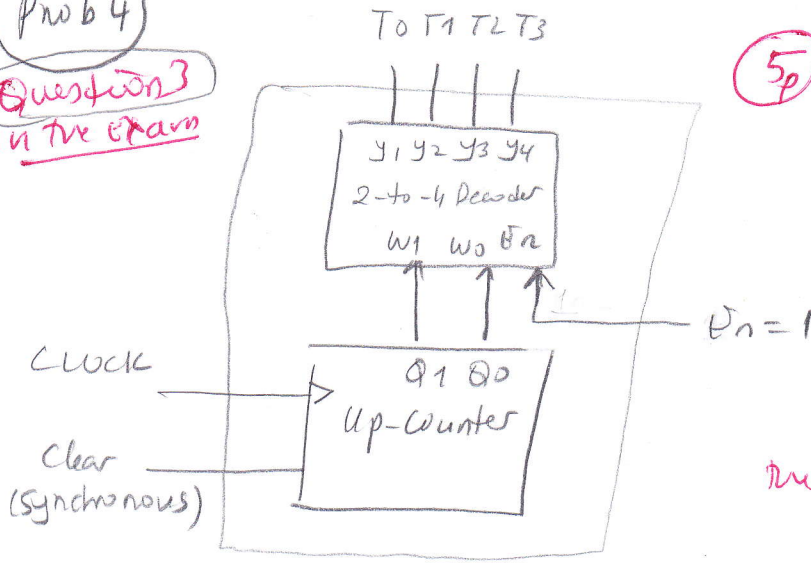 Prob 4
Question 3
n the Exam
T0 T1 T2 T3
5p
y1 y2 y3 y4
2-to-4 Decoder
W1 W0 En
En = 1
Q1 Q0
Up-Counter
CLOCK
Clear
(Synchronous)